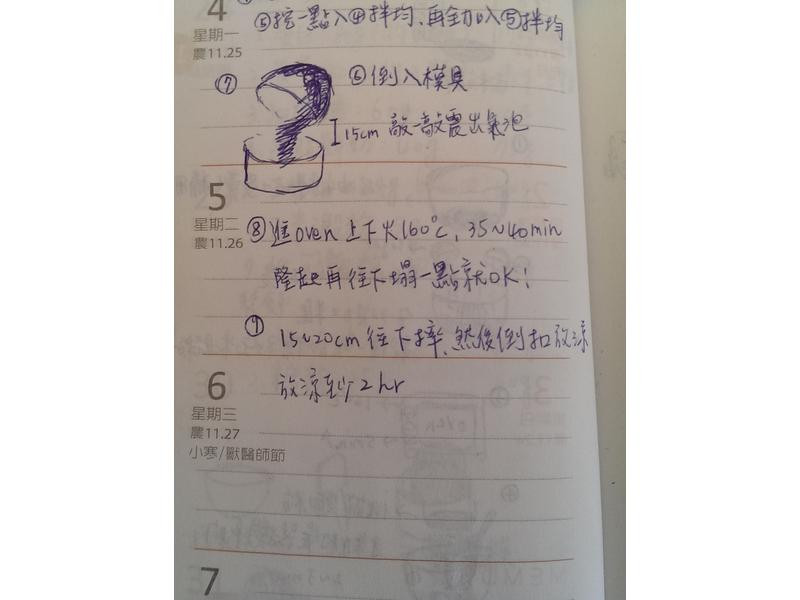 4
星期一
農11.25
⑥挖一點入④拌均、再全加入⑤拌均
⑦
⑥倒入模具
15cm 敲一敲震出氣泡
5
星期二
農11.26
⑧進oven 上下火160°C, 35~40min
隆起再往下塌一點就OK!
⑨
15~20cm 往下摔、然後倒扣放涼
放涼至少2hr
6
星期三
農11.27
小寒/獸醫師節
7